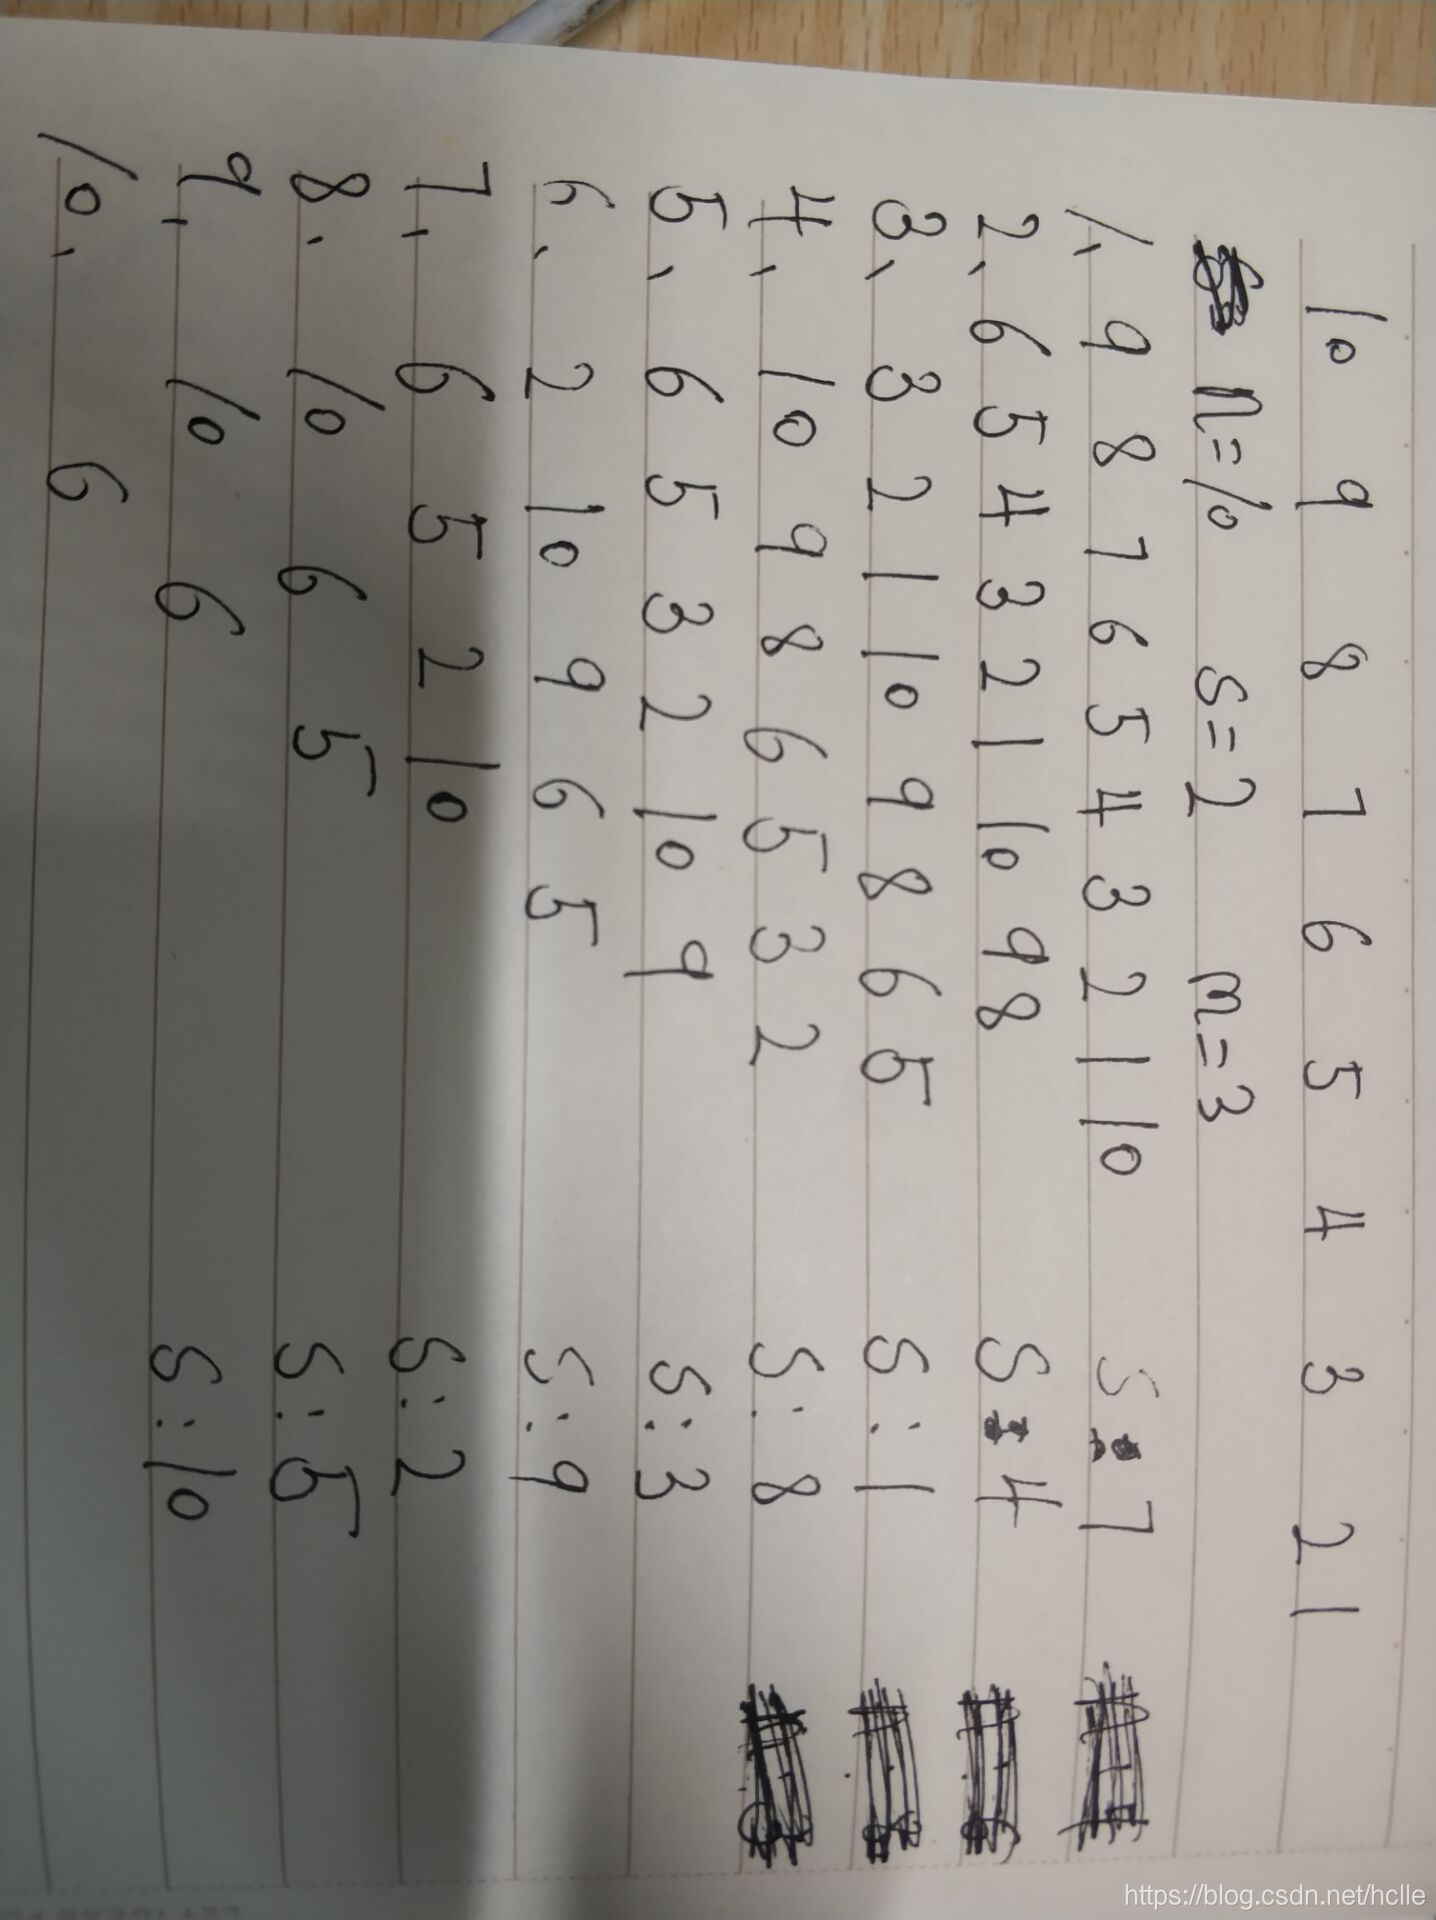 10 9 8 7 6 5 4 3 2 1
n=10 s=2 m=3
1、9 8 7 6 5 4 3 2 1 10 S:7
2、6 5 4 3 2 1 10 9 8 S:4
3、3 2 1 10 9 8 6 5 S:1
4、10 9 8 6 5 3 2 S:8
5、6 5 3 2 10 9 S:3
6、2 10 9 6 5 S:9
7、6 5 2 10 S:2
8、10 6 5 S:5
9、10 6 S:10
10、6
https://blog.csdn.net/hclle